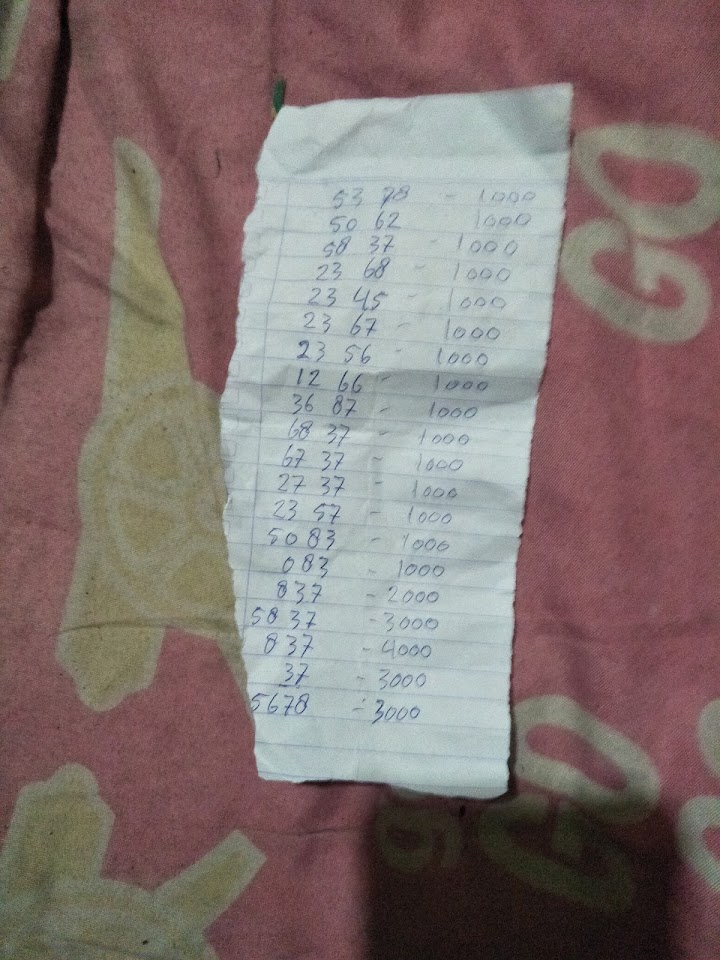 53 78 - 1000
50 62 1000
58 37 - 1000
23 68 - 1000
23 45 - 1000
23 67 - 1000
23 56 - 1000
12 66 - 1000
36 87 - 1000
68 37 - 1000
67 37 - 1000
27 37 - 1000
23 57 - 1000
50 83 - 1000
083 - 1000
837 - 2000
5837 - 3000
837 - 4000
37 - 3000
5678 - 3000
GO
GO